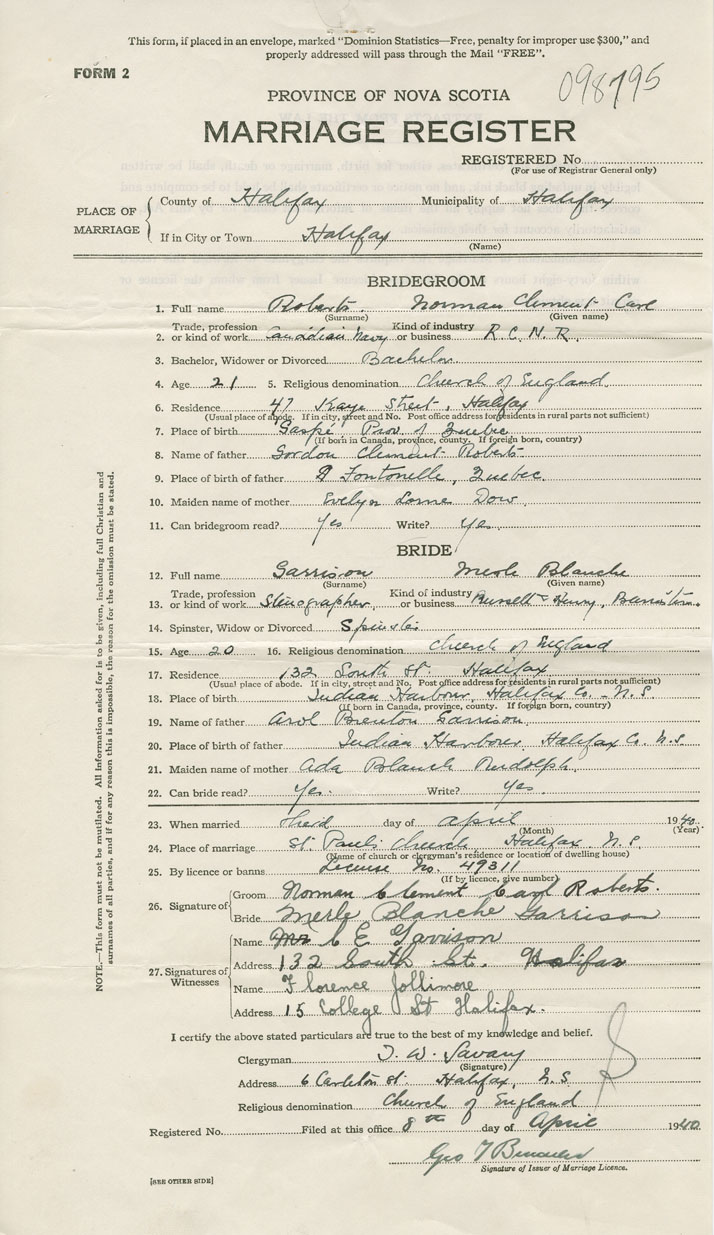 This form, if placed in an envelope, marked "Dominion Statistics—Free, penalty for improper use $300," and
properly addressed will pass through the Mail "FREE".
FORM 2
098795
PROVINCE OF NOVA SCOTIA
MARRIAGE REGISTER
REGISTERED No.
(For use of Registrar General only)
PLACE OF MARRIAGE
County of Halifax Municipality of Halifax
If in City or Town Halifax
(Name)
BRIDEGROOM
1. Full name Roberts. Norman Clement Carl
(Surname) (Given name)
Trade, profession Kind of industry
2. or kind of work Canadian Navy or business R.C.N.R.
3. Bachelor, Widower or Divorced Bachelor
4. Age 21 5. Religious denomination Church of England
6. Residence 47 Kaye Street, Halifax
(Usual place of abode. If in city, street and No. Post office address for residents in rural parts not sufficient)
7. Place of birth Gaspé Prov. of Quebec
(If born in Canada, province, county. If foreign born, country)
8. Name of father Gordon Clement Roberts
9. Place of birth of father Fontonelle, Quebec.
10. Maiden name of mother Evelyn Lorne Dow
11. Can bridegroom read? Yes Write? Yes.
BRIDE
12. Full name Garrison Merle Blanche
(Surname) (Given name)
Trade, profession Kind of industry
13. or kind of work Stenographer or business Russell & Henry,
14. Spinster, Widow or Divorced Spinster
15. Age 20 16. Religious denomination Church of England
17. Residence 132 South St. Halifax
(Usual place of abode. If in city, street and No. Post office address for residents in rural parts not sufficient)
18. Place of birth Indian Harbour, Halifax Co. N.S.
(If born in Canada, province, county. If foreign born, country)
19. Name of father Brenton Garrison
20. Place of birth of father Indian Harbour, Halifax Co. N.S.
21. Maiden name of mother Ada Blanch Rudolph
22. Can bride read? Yes. Write? Yes.
23. When married third day of April 1940.
(Month) (Year)
24. Place of marriage St. Paul's Church, Halifax, N.S.
(Name of church or clergyman's residence or location of dwelling house)
25. By licence or banns License No. 49311
(If by licence, give number)
26. Signature of
Groom Norman Clement Carl Roberts.
Bride Merle Blanche Garrison
27. Signatures of Witnesses
Name C E Garrison
Address 132 South St. Halifax
Name Florence Jollimore
Address 15 College St Halifax.
I certify the above stated particulars are true to the best of my knowledge and belief.
Clergyman T. W. Savary
(Signature)
Address 6 Carleton St. Halifax, N.S.
Religious denomination Church of England
Registered No. Filed at this office 8th day of April 1940
Geo T
Signature of Issuer of Marriage Licence.
[SEE OTHER SIDE]
NOTE.—This form must not be mutilated. All information asked for is to be given, including full Christian and
surnames of all parties, and if for any reason this is impossible, the reason for the omission must be stated.